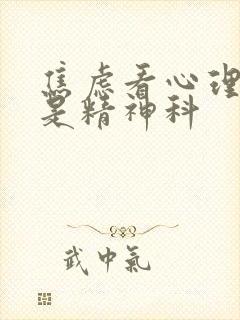 焦虑看心理
是精神科
武中氣